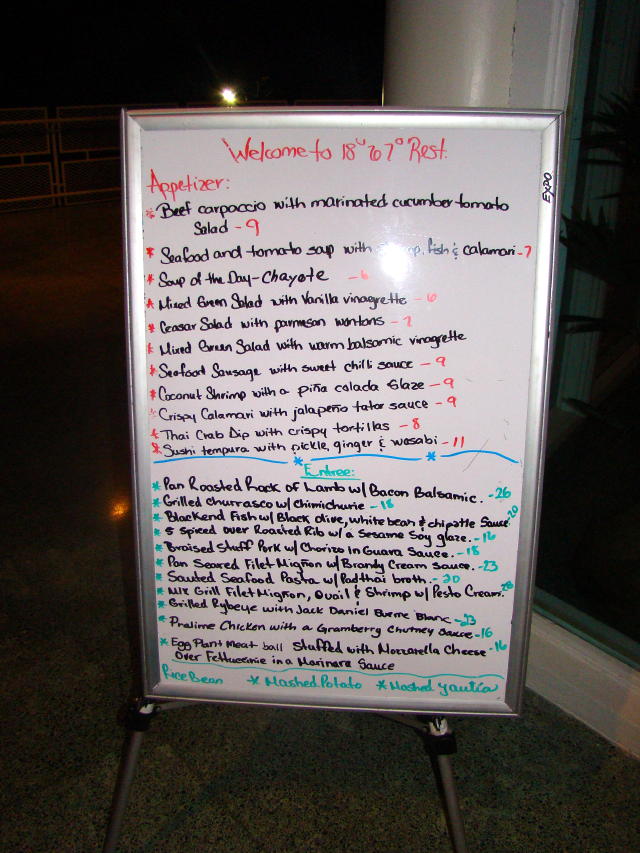 Welcome to 18° 67° Rest.
EXPO
Appetizer:
* Beef carpaccio with marinated cucumber tomato
Salad - 9
* Seafood and tomato soup with fish & calamari - 7
* Soup of the Day - Chayote - 6
* Mixed Green Salad with Vanilla vinagrette - 6
* Ceasar Salad with parmesan wontons - 7
* Mixed Green Salad with warm balsamic vinagrette
* Seafood Sausage with sweet chilli sauce - 9
* Coconut Shrimp with a piña calada Glaze - 9
* Crispy Calamari with jalapeño tator sauce - 9
* Thai Crab Dip with crispy tortillas - 8
* Sushi tempura with pickle, ginger & wasabi - 11
Entree:
* Pan Roasted Rack of Lamb w/ Bacon Balsamic. - 26
* Grilled churrasco w/ Chimichurie - 18
* Blackend Fish w/ Black olive, white bean & chipotle Sauce - 20
* 5 spiced over Roasted Rib w/ a Sesame Soy glaze. - 16
* Braised Stuff Pork w/ Chorizo In Guava Sauce. - 18
* Pan Seared Filet Mignon w/ Brandy Cream sauce. - 23
* Sauted Seafood Pasta w/ Padthai broth. - 20
* Mix Grill Filet Mignon, Quail & Shrimp w/ Pesto Cream.
* Grilled Rybeye with Jack Daniel Burre Blanc - 23
* Praline Chicken with a Gramberry Chutney Sauce - 16
* Egg Plant Meat ball Stuffed with Mozzarella Cheese - 16
Over Fettuccinie in a Marinara Sauce
Rice Bean * Mashed Potato * Mashed yautia